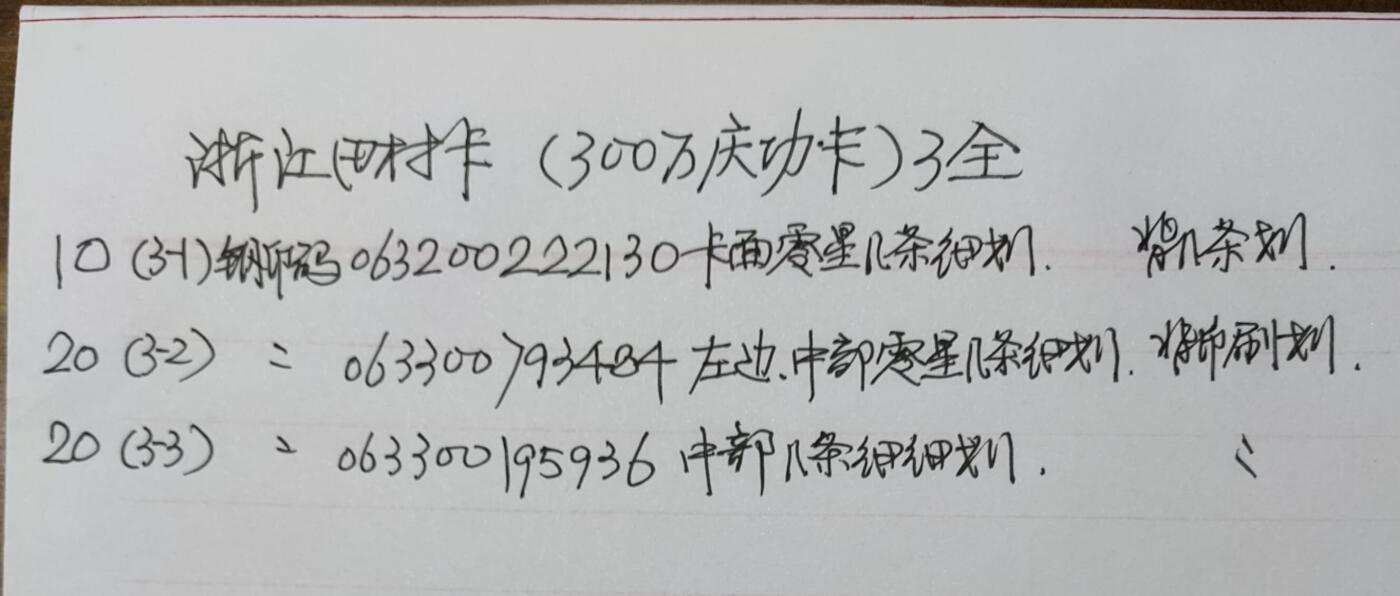 浙江田村卡（300万庆功卡）3全
10（3-1）钢印码063200222130卡面零星几条细划． 背几条划．
20（3-2） = 063300793484左边.中部零星几条细划．背印刷划．
20（3-3） = 063300195936中部几条细细划． 〃